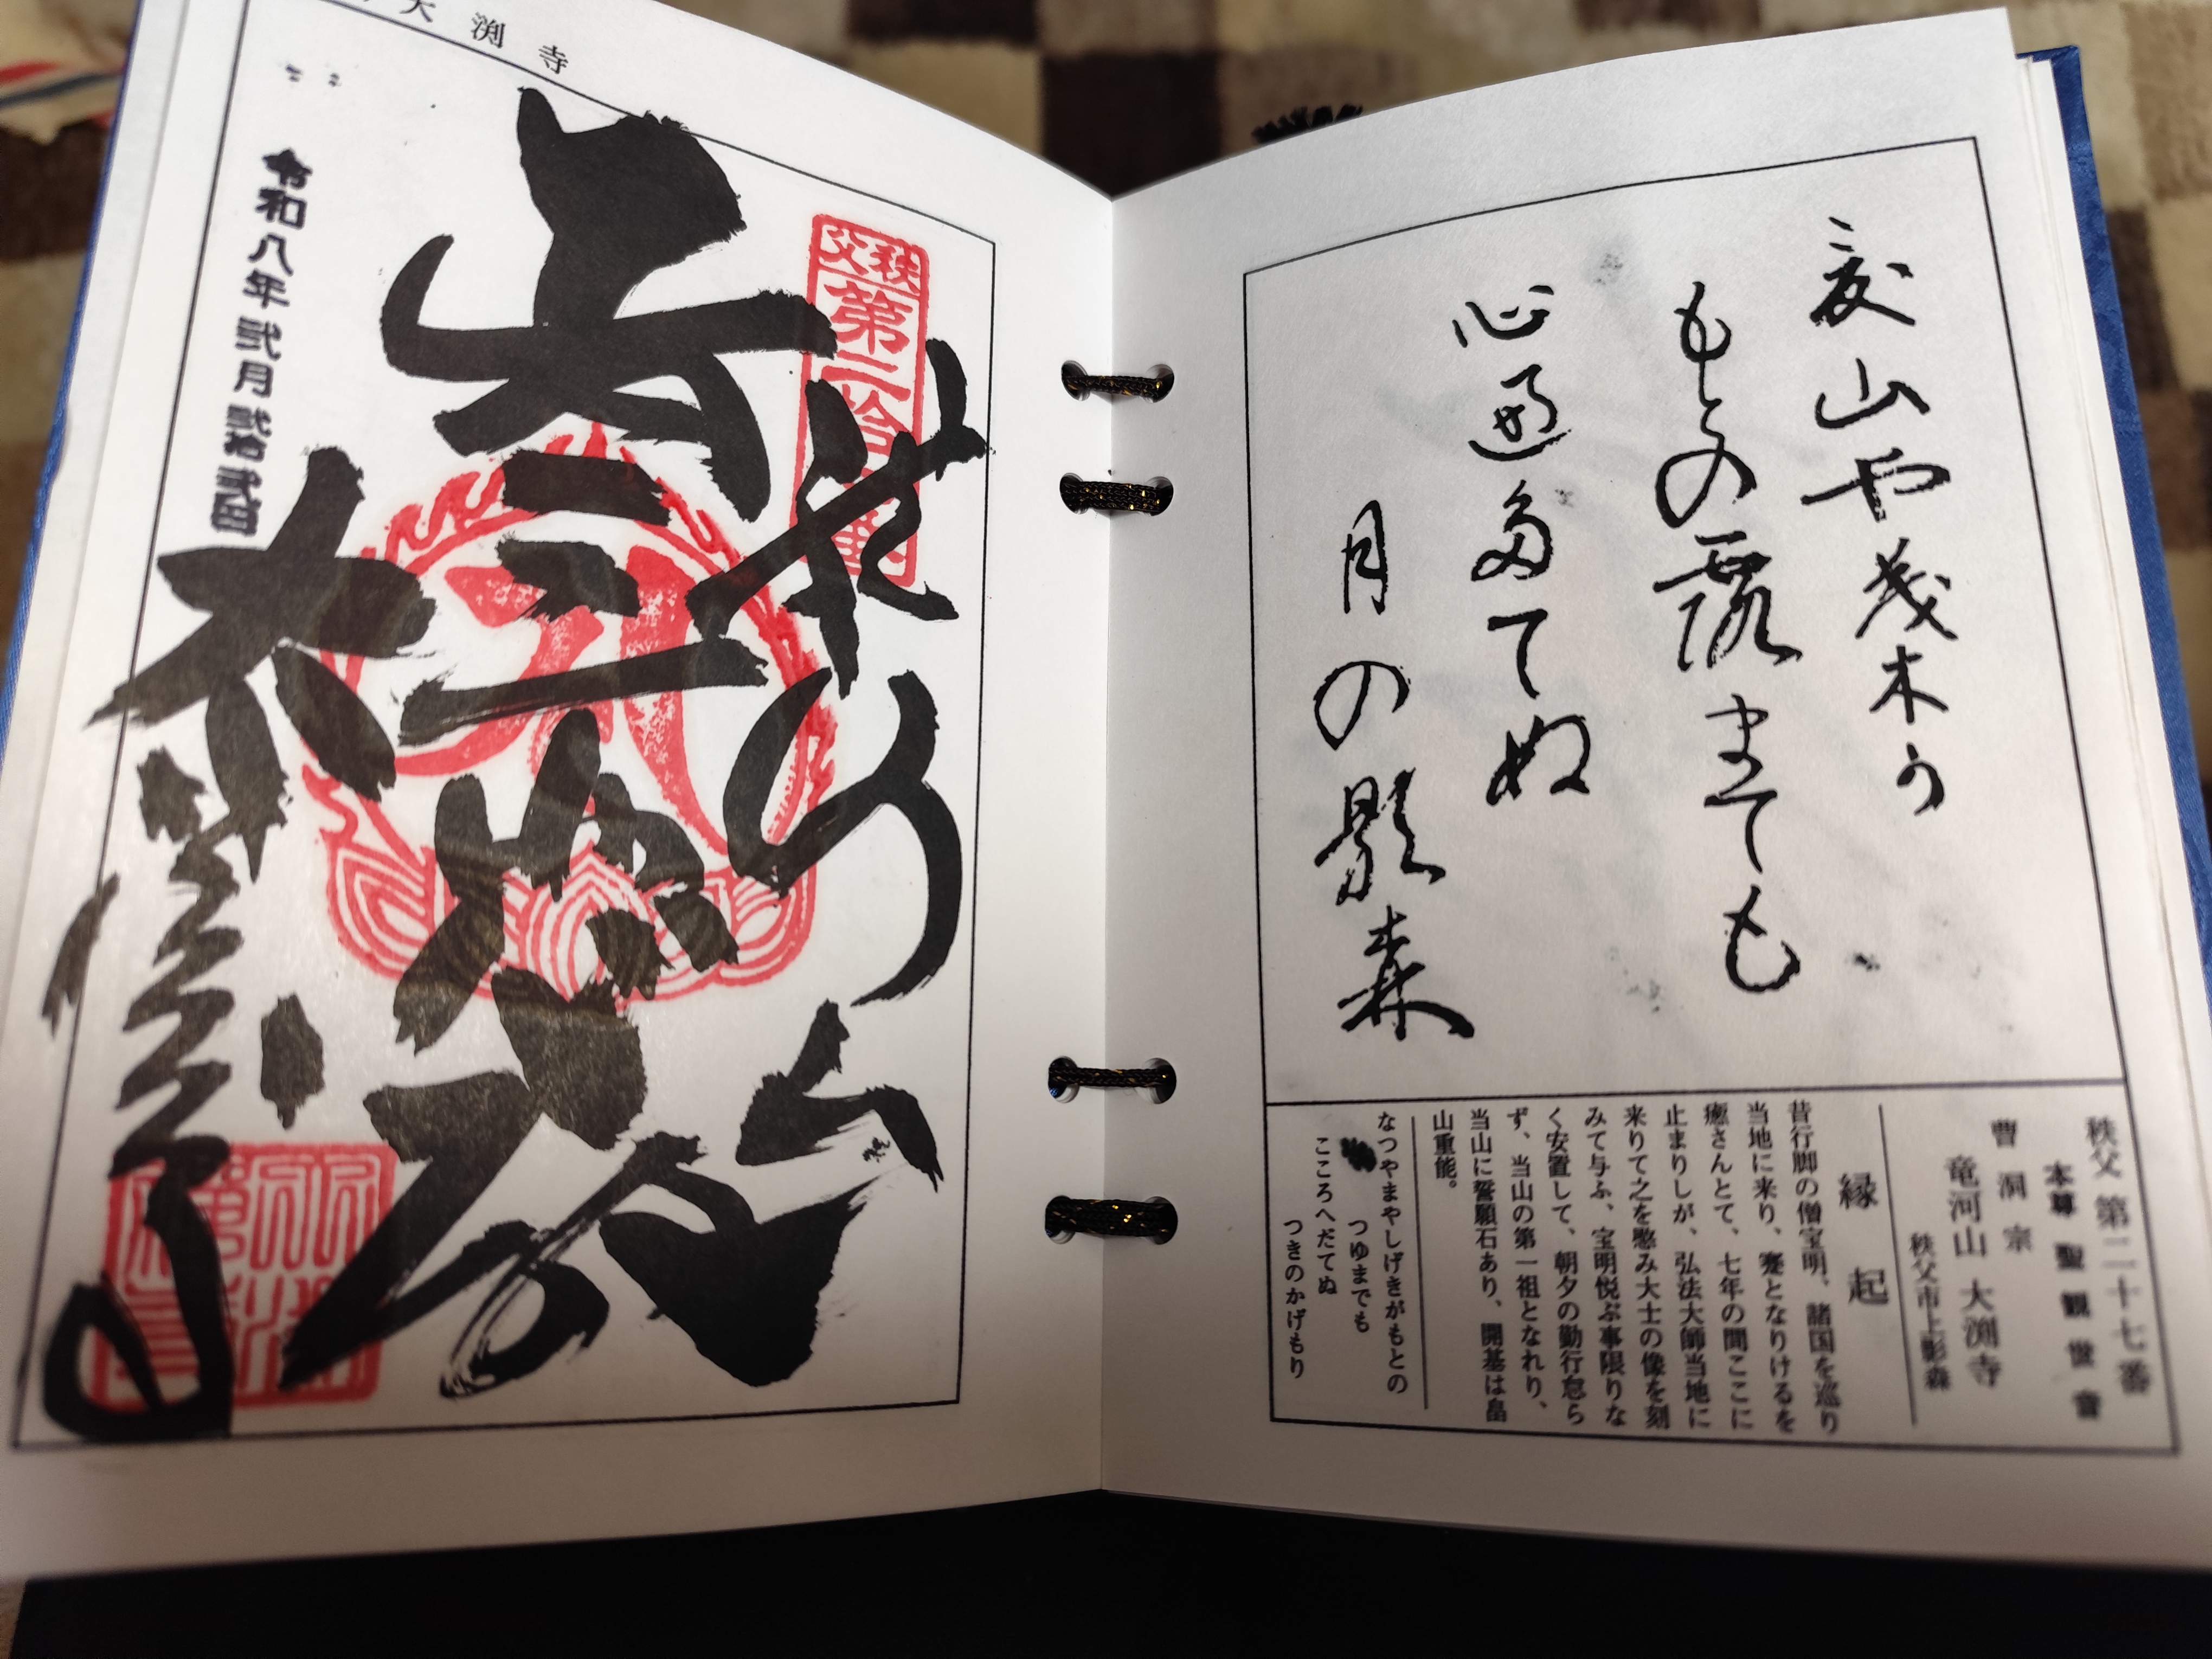 夏山や茂木う
もとの露まても
心遍多てぬ
月の影森
秩父 第二十七番
本尊 聖観世音
曹洞宗
竜河山 大渕寺
秩父市上影森
縁起
昔行脚の僧宝明、諸国を巡り
当地に来り、蹇となりけるを
癒さんとて、七年の間ここに
止まりしが、弘法大師当地に
来りて之を愍み大士の像を刻
みて与ふ、宝明悦ぶ事限りな
く安置して、朝夕の勤行怠ら
ず、当山の第一祖となれり、
当山に誓願石あり、開基は畠
山重能。
なつやまやしげきがもとの
つゆまでも
こころへだてぬ
つきのかげもり
大渕寺
秩父
第二拾
令和八年弐月弐拾弐日